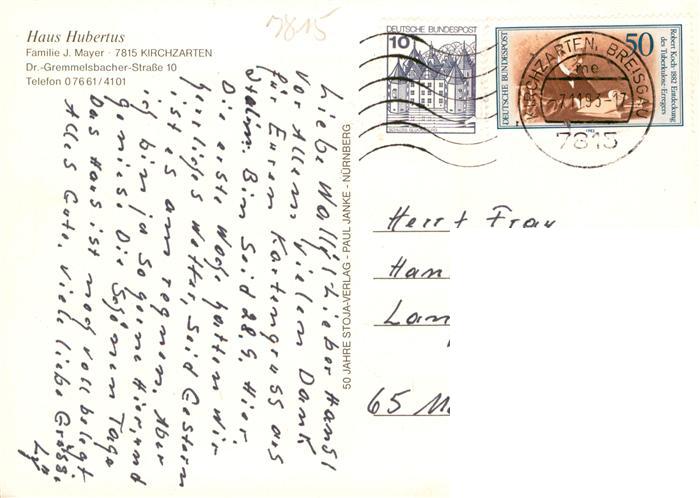 Haus Hubertus
Familie J. Mayer · 7815 KIRCHZARTEN
Dr.-Gremmelsbacher-Straße 10
Telefon 0 76 61 / 4101
7815
DEUTSCHE BUNDESPOST
10
SCHLOSS GLÜCKSBURG
DEUTSCHE BUNDESPOST
50
Robert Koch · 1882 Entdeckung
des Tuberkulose-Erregers
KIRCHZARTEN, BREISGAU
7815
Liebe Wallys Lieber Hansl
Vor Allem vielen Dank
für Euren Kartengruss aus
Bin seid 28.9. Hier
Die erste Woche hatten wir
herrliches Wetter, seid Gestern
ist es am regnen. Aber
ich bin ja so gerne Hier, und
geniese Die Schönen Tage
Das Haus ist noch voll belegt
Alles Gute, viele liebe Grüsse
50 JAHRE STOJA-VERLAG - PAUL JANKE - NÜRNBERG
Herr + Frau
Han
Lan
65 M